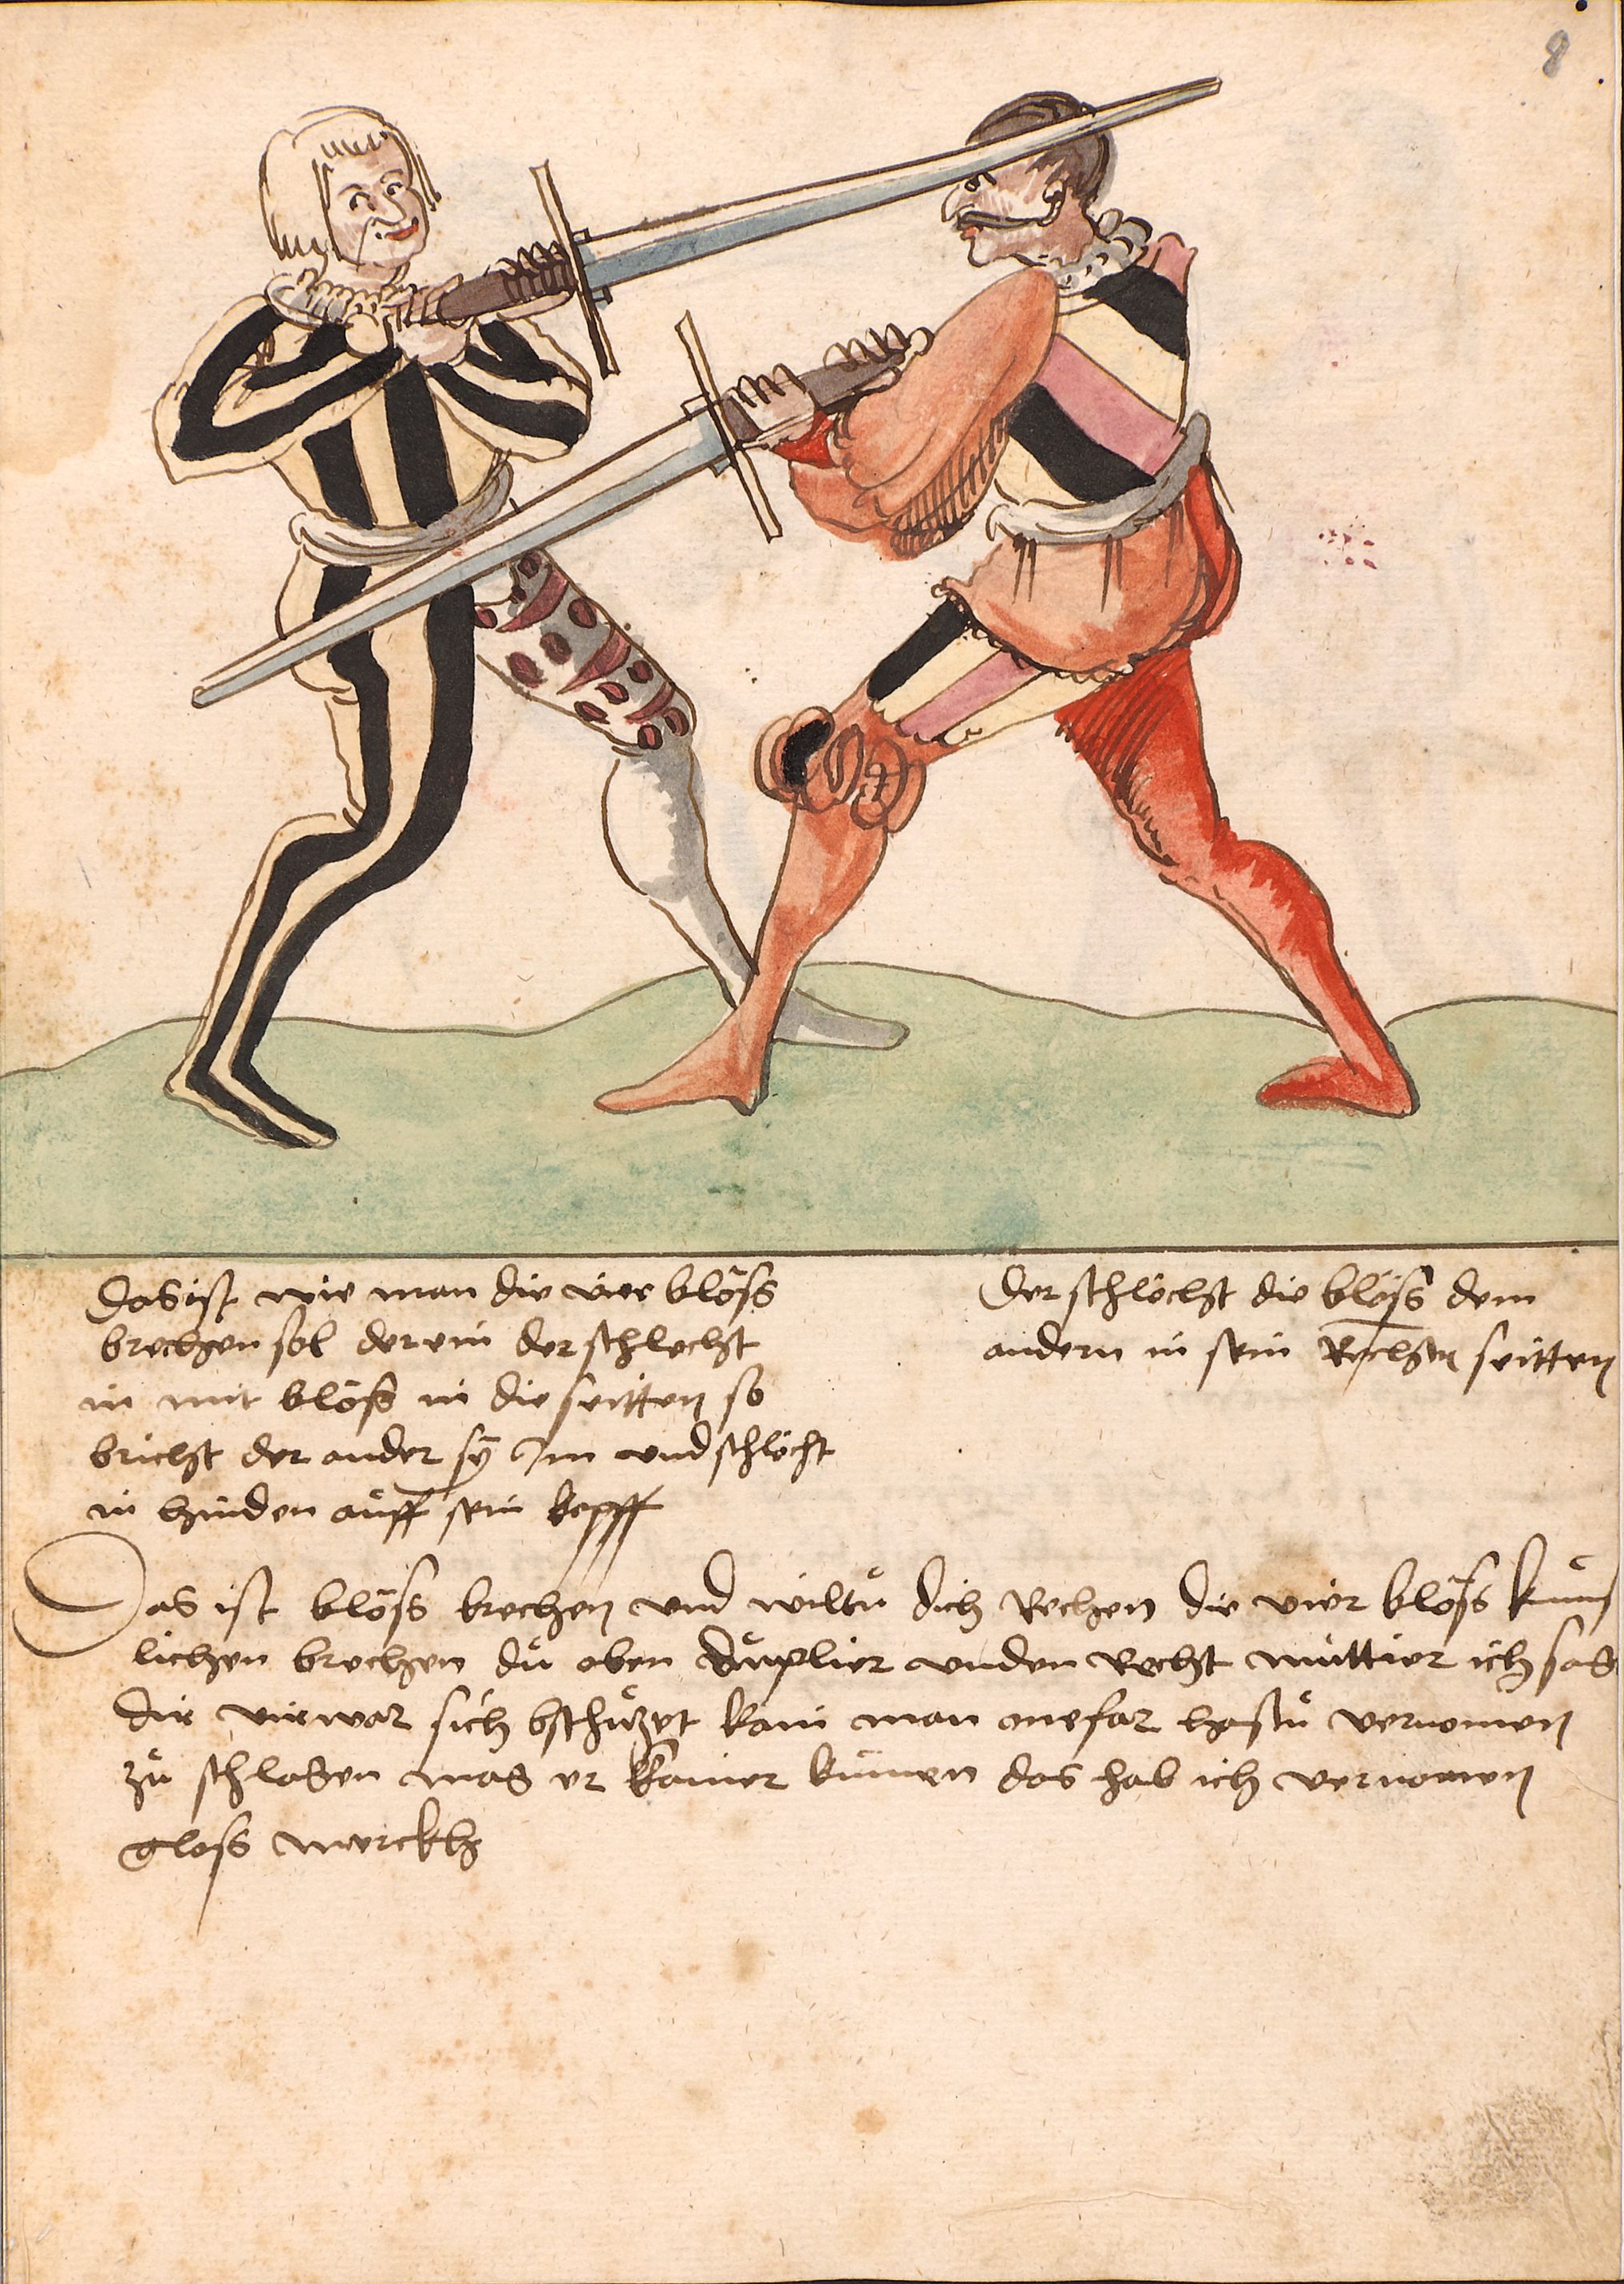 8
Das ist wie man die vier blöss
brechen sol der ein der schlecht
in mit blöss in die seitten so
bricht der ander sÿ Im und schlöcht
in hinden aůff sein kopff
Der schlöcht die blöss dem
andern in sein Rechten seitten
Das ist blöss brechen vnd wiltů dich Rechen die vier blöss kůns
lichen brechen dů oben důplier vnden Recht můttier ich sag
dir vir war sich bschůzet kain man one far hastů vernomen
zů schlagen mag er kainer kůmen das hab ich vernomen
gloss merckh